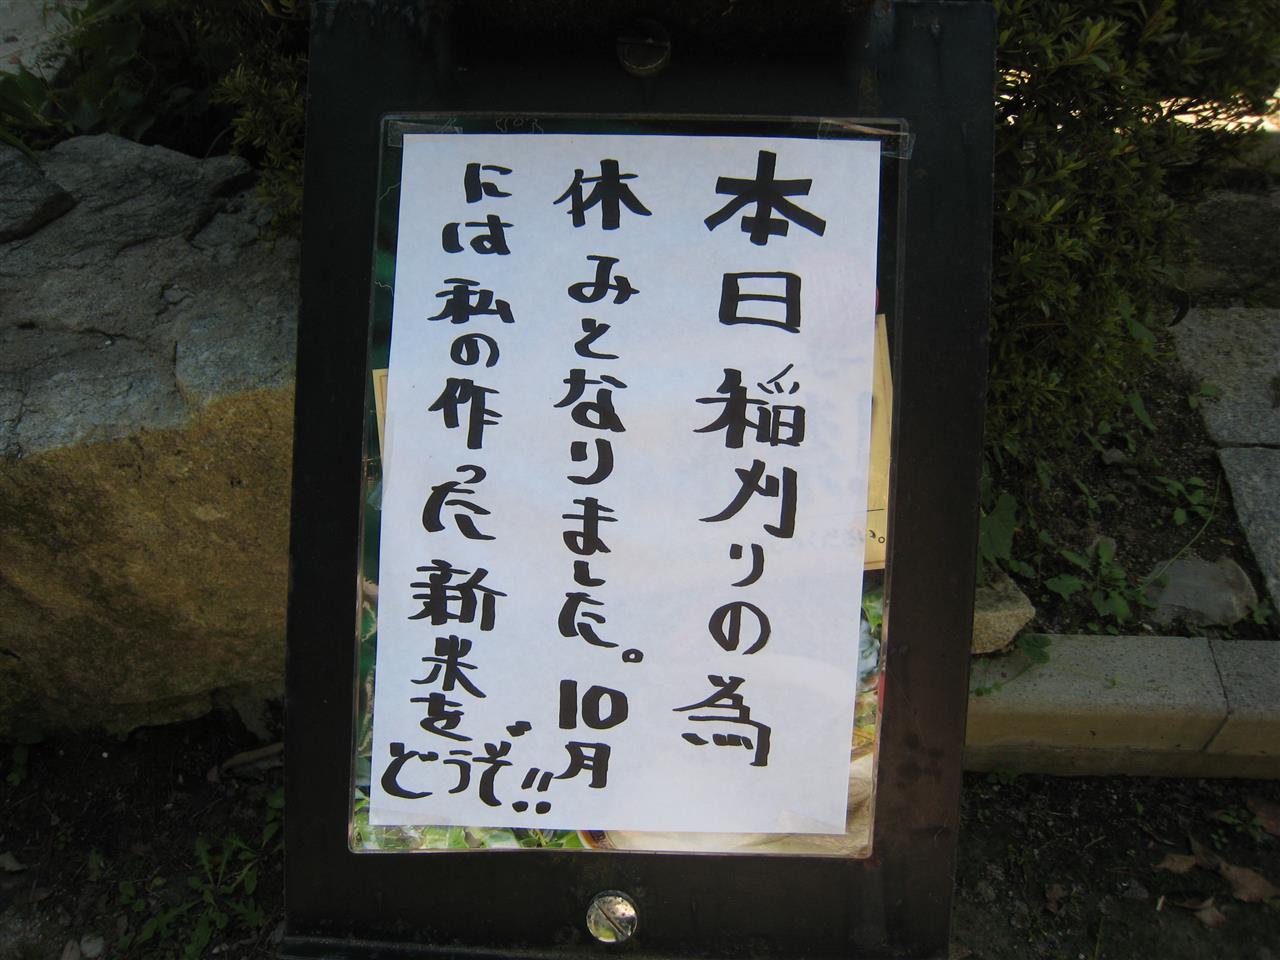 本日稲刈りの為
休みとなりました。10月
には私の作った新米を
どうぞ!!